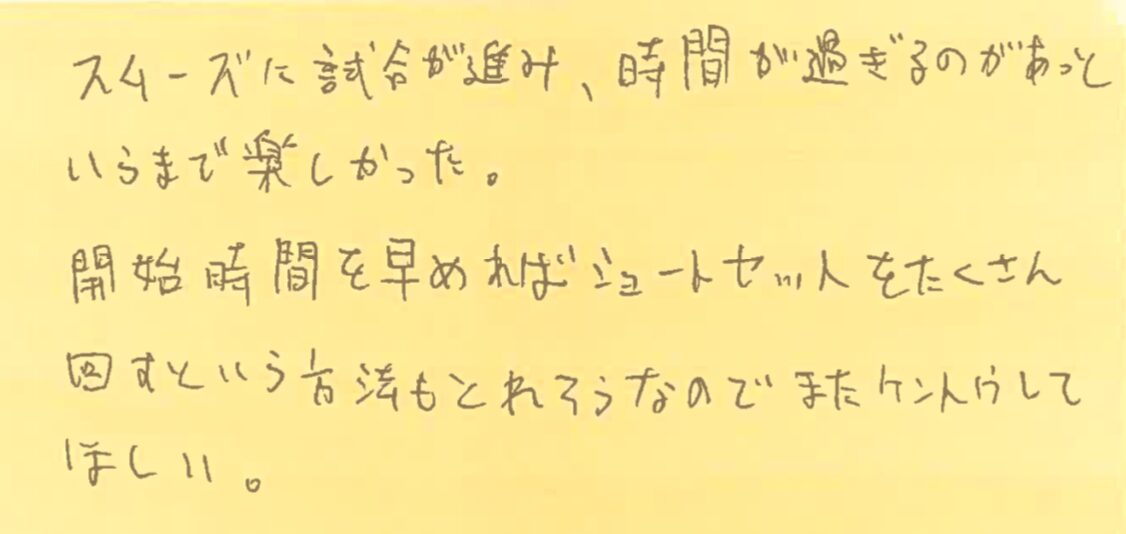 スムーズに試合が進み、時間が過ぎるのがあっと
いうまで楽しかった。
開始時間を早めればジュートセットをたくさん
回すという方法もとれそうなのでまたケントウして
ほしい。